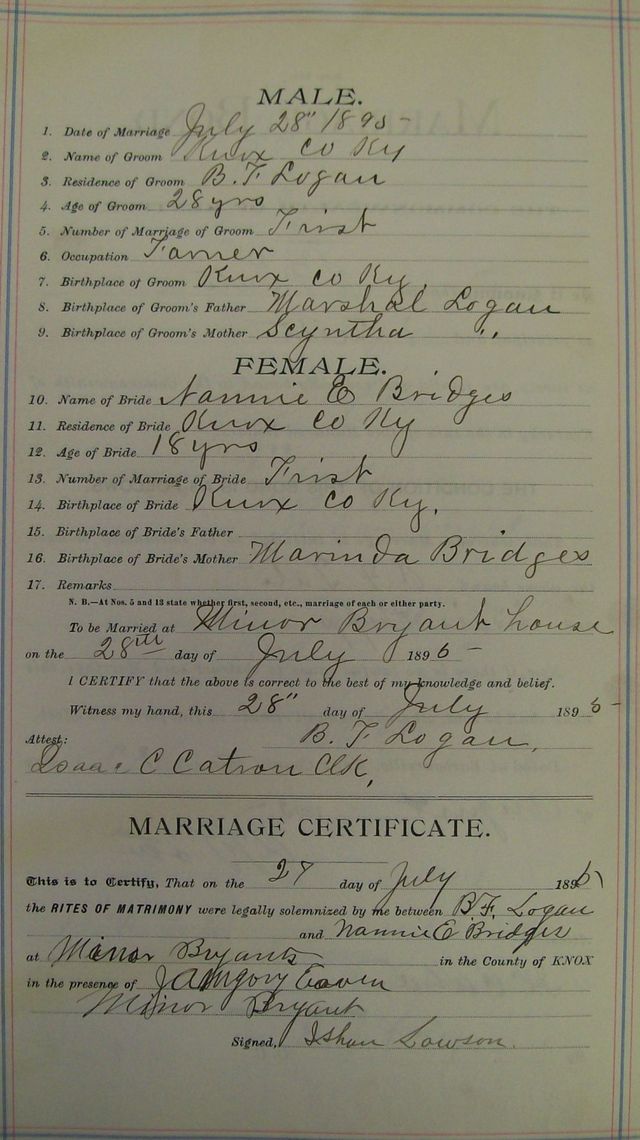 MALE.
1. Date of Marriage July 28" 1895 -
2. Name of Groom Knox Co Ky
3. Residence of Groom B. F Logan
4. Age of Groom 28 yrs
5. Number of Marriage of Groom First
6. Occupation Farmer
7. Birthplace of Groom Knox Co Ky.
8. Birthplace of Groom's Father Marshal Logan
9. Birthplace of Groom's Mother Scyntha "
FEMALE.
10. Name of Bride Nannie E Bridges
11. Residence of Bride Knox Co Ky
12. Age of Bride 18 yrs
13. Number of Marriage of Bride First
14. Birthplace of Bride Knox Co Ky.
15. Birthplace of Bride's Father
16. Birthplace of Bride's Mother Marinda Bridges
17. Remarks
N. B.—At Nos. 5 and 13 state whether first, second, etc., marriage of each or either party.
To be Married at Minor Bryant house
on the 28th day of July 1895 -
I CERTIFY that the above is correct to the best of my knowledge and belief.
Witness my hand, this 28" day of July 1895 -
Attest: B. F Logan,
Isaac C Catron Clk,
MARRIAGE CERTIFICATE.
This is to Certify, That on the day of July 1895
the RITES OF MATRIMONY were legally solemnized by me between B. F. Logan
and Nannie E Bridges
at Minor Bryants in the County of KNOX
in the presence of
Minor Bryant
Signed, Isham Lawson.